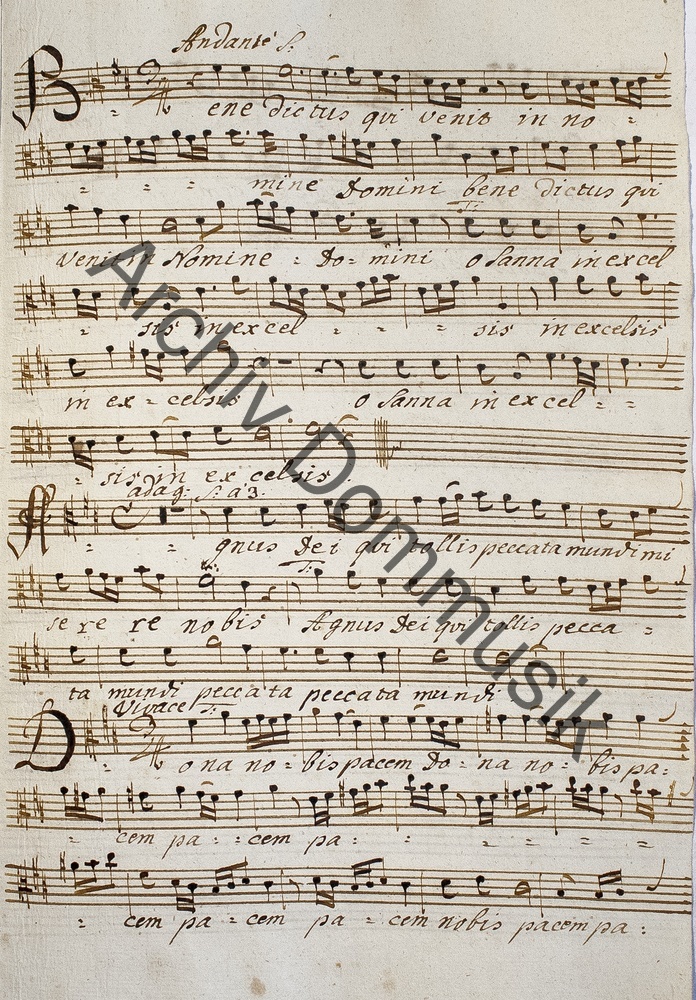 Andante S:
Bene dictus qui venit in no -
- - - mine Domini bene dictus qui
T:
venit in Nomine - Do - mini o Sanna in excel
- sis in excel - - - sis in excelsis
in ex - celsis o Sanna in excel - -
- sis in ex celsis
adag: S: a 3.
A - - gnus Dei qui tollis peccata mundi mi
T:
se re re nobis Agnus Dei qui tollis pecca -
ta mundi peccata peccata mundi
Vivace T:
Do na no - bis pacem do - na no - bis pa -
- cem pa - cem pa - - - - - -
- cem pa - cem pa - cem nobis pacem pa :
Archiv Dommusik